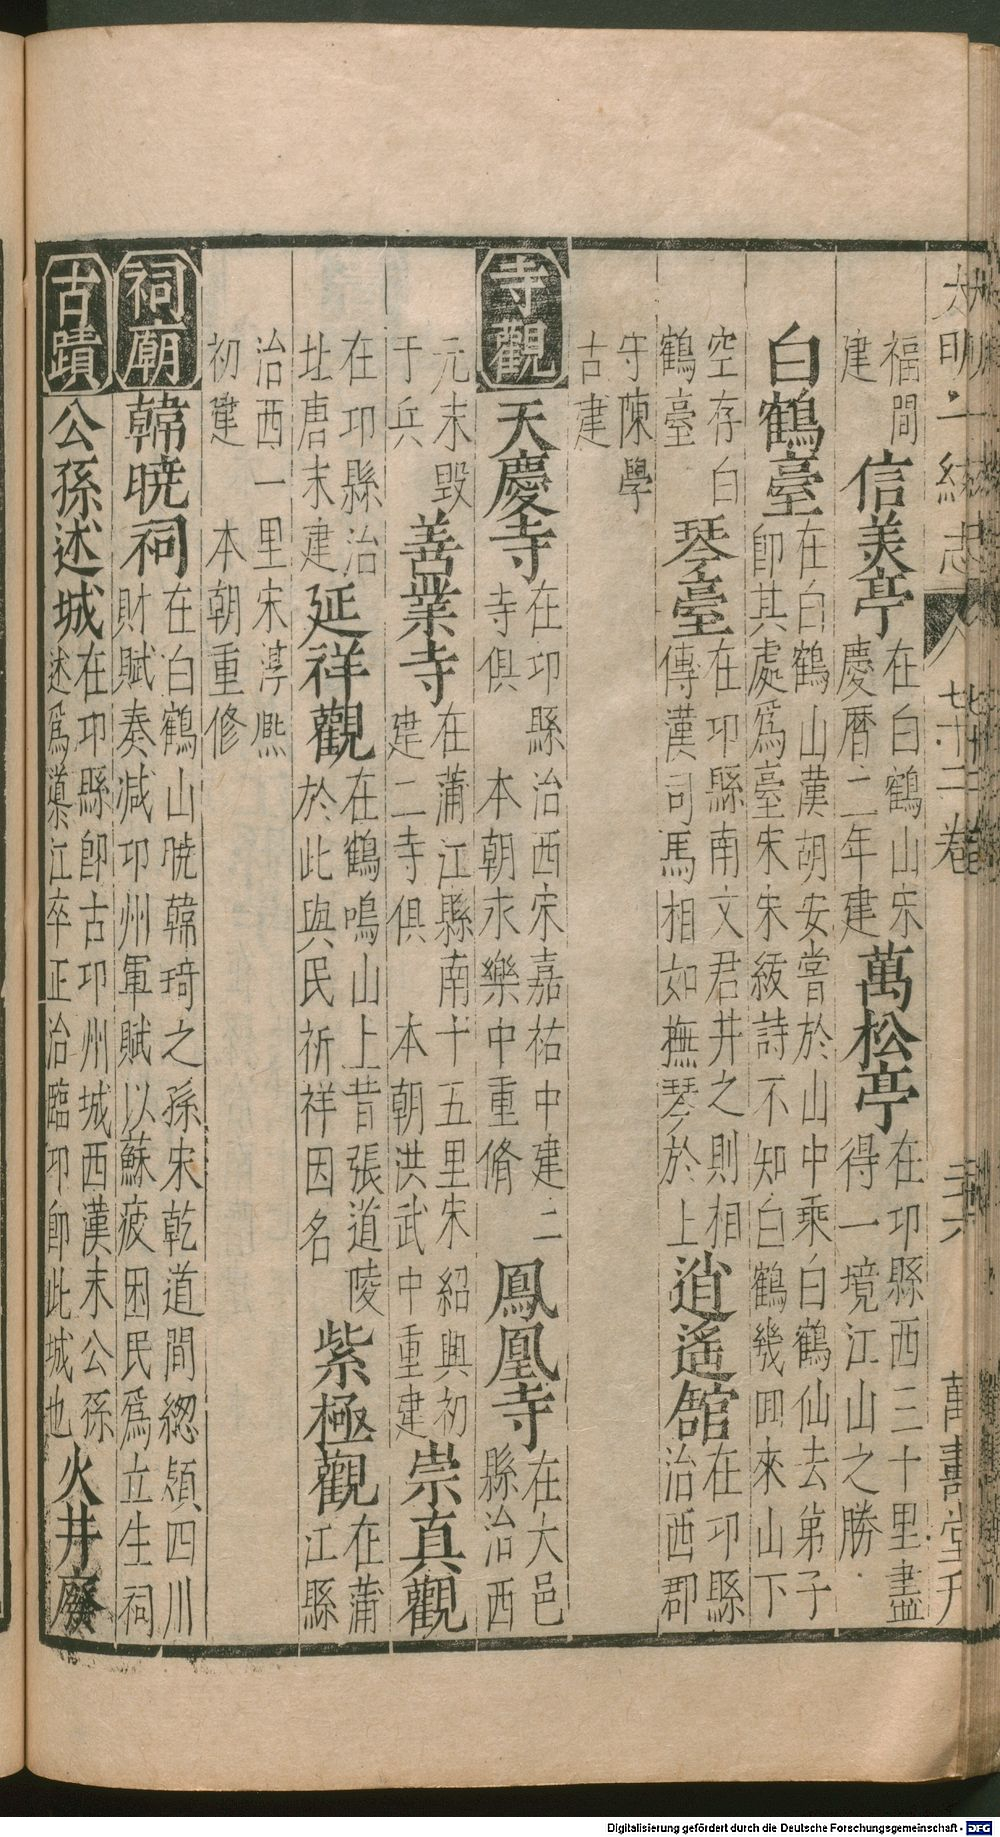 大明一統志 七十二卷 三十六 萬壽堂刊
福間建 信美亭 在白鶴山宋慶曆二年建 萬松亭 在邛縣西三十里盡得一境江山之勝
白鶴臺 在白鶴山漢胡安嘗於山中乘白鶴仙去弟子即其處爲臺宋朱紱詩不知白鶴幾回來山下
空存白鶴臺 琴臺 在邛縣南文君井之則相傳漢司馬相如撫琴於上 逍遙館 在邛縣治西郡
守陳學古建
寺觀 天慶寺 在邛縣治西宋嘉祐中建二寺俱 本朝永樂中重脩 鳳凰寺 在大邑縣治西
元末毀于兵 善業寺 在蒲江縣南十五里宋紹興初建二寺俱 本朝洪武中重建 崇真觀
在邛縣治址唐末建 延祥觀 在鶴鳴山上昔張道陵於此與民祈祥因名 紫極觀 在蒲江縣
治西一里宋淳熙初建 本朝重修
祠廟 韓曉祠 在白鶴山曉韓琦之孫宋乾道間緫領四川財賦奏減邛州軍賦以蘇疲困民爲立生祠
古蹟 公孫述城 在邛縣即古邛州城西漢末公孫述爲導江卒正治臨邛即此城也 火井廢
Digitalisierung gefördert durch die Deutsche Forschungsgemeinschaft - DFG